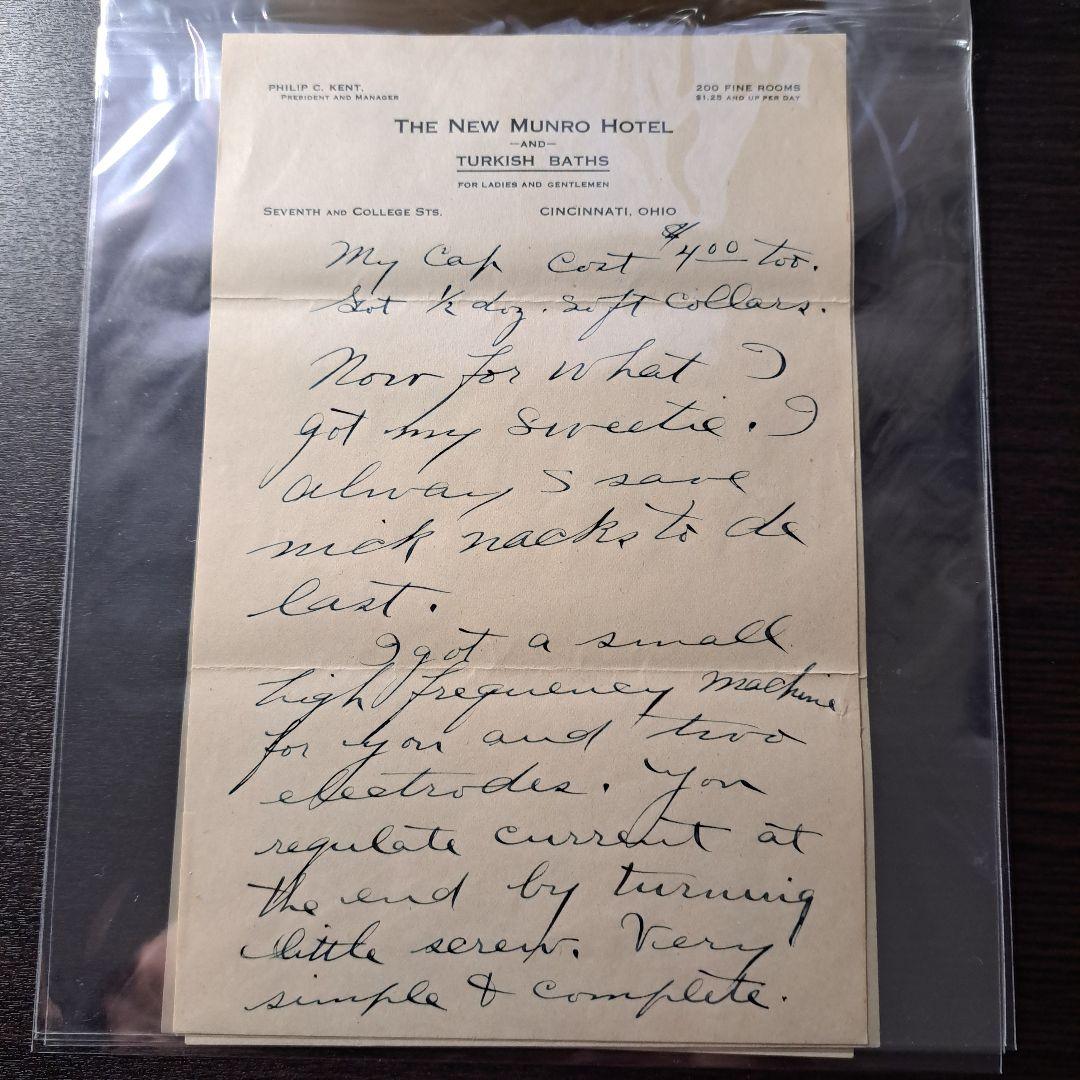 PHILIP C. KENT,
PRESIDENT AND MANAGER
200 FINE ROOMS
$1.25 AND UP PER DAY
THE NEW MUNRO HOTEL
—AND—
TURKISH BATHS
FOR LADIES AND GENTLEMEN
SEVENTH AND COLLEGE STS.
CINCINNATI, OHIO
My Cap cost $4.00 too.
Got ½ doz. soft collars.
Now for what I
got my sweetie. I
always save
nick nacks to de
last.
I got a small
high frequency machine
for you and two
electrodes. You
regulate current at
the end by turning
little screw. Very
simple & complete.